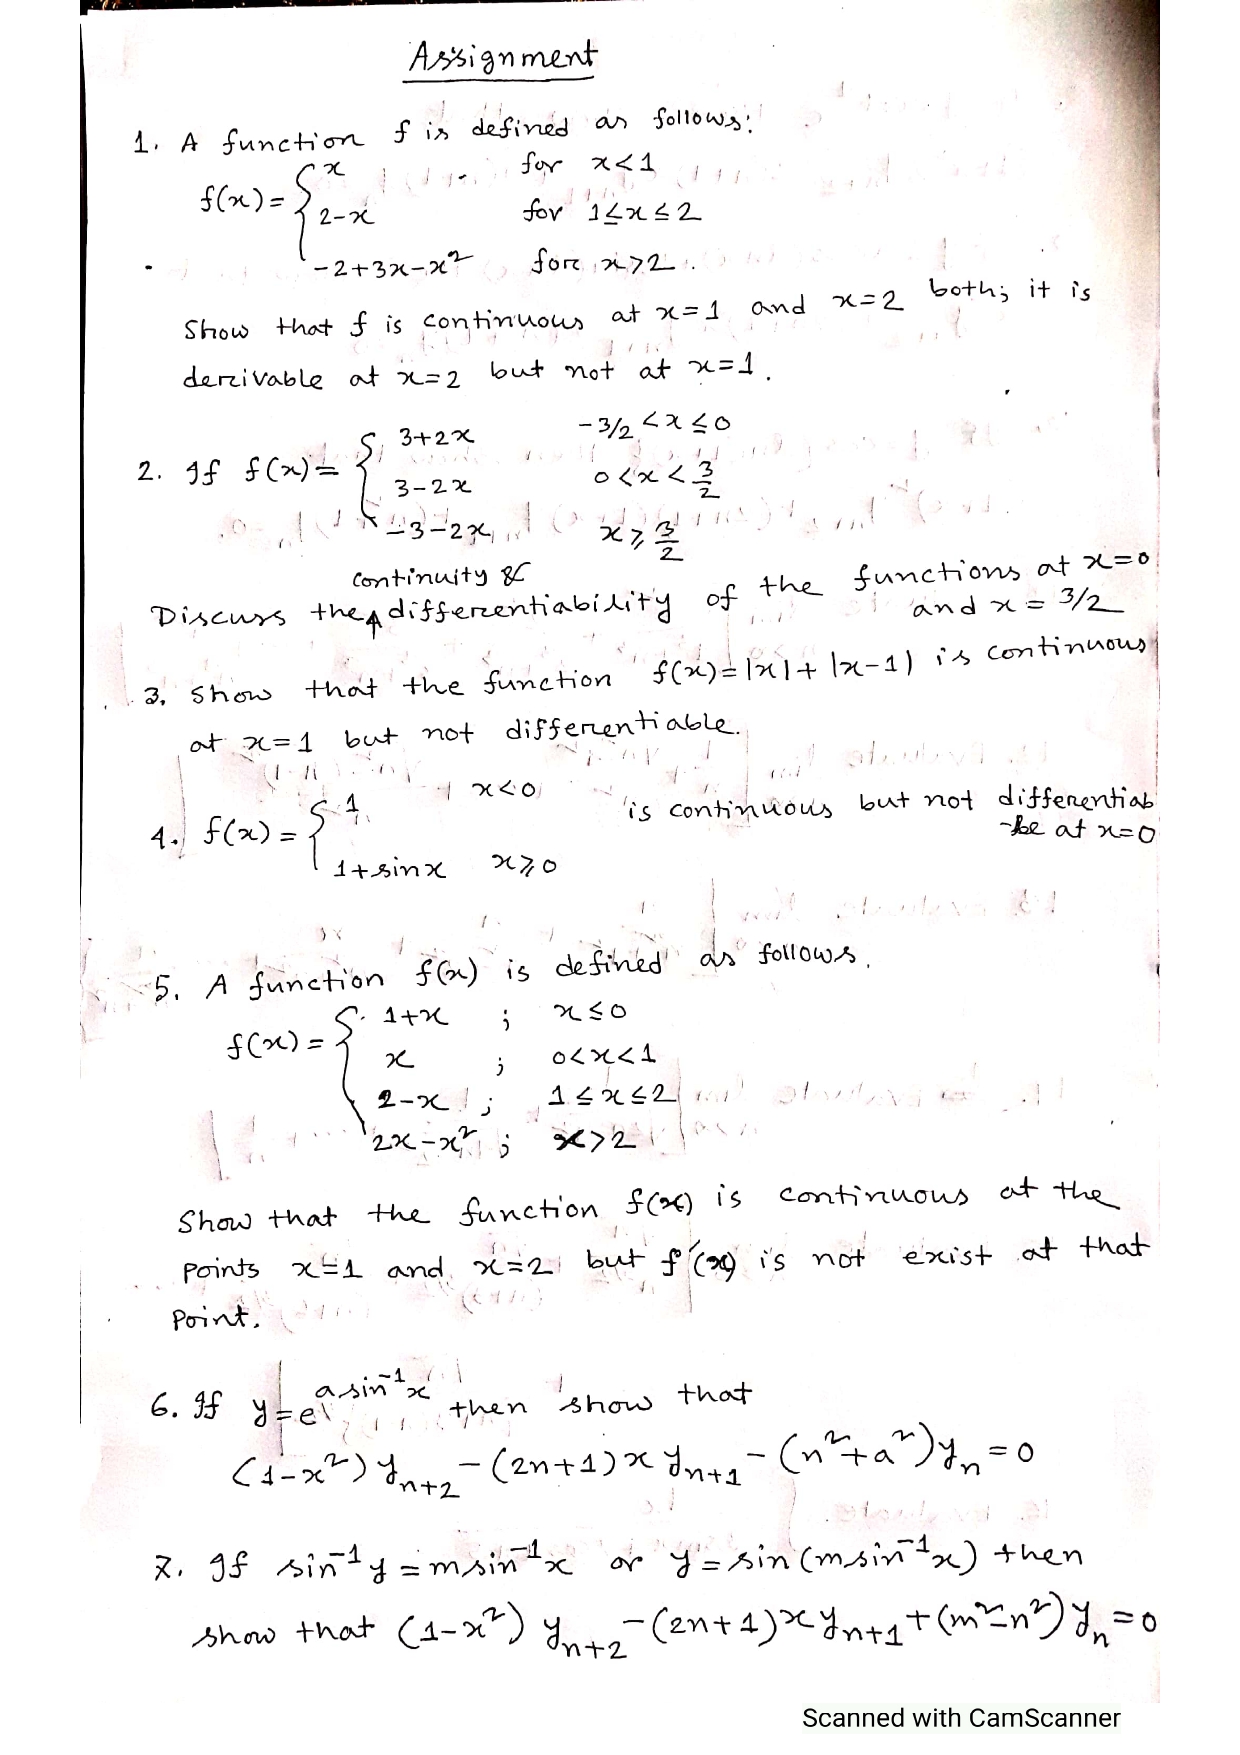 Assignment
1. A function f is defined as follows:
f(x) = { x for x<1
2-x for 1≤x≤2
-2+3x-x² for x>2.
Show that f is continuous at x=1 and x=2 both; it is
derivable at x=2 but not at x=1.
2. If f(x) = { 3+2x -3/2 <x ≤0
3-2x 0<x<3/2
-3-2x x≥3/2
continuity &
Discuss the differentiability of the functions at x=0
and x = 3/2
3. Show that the function f(x)=|x|+|x-1| is continuous
at x=1 but not differentiable.
4. f(x) = { 1 x<0 is continuous but not differentiab
-le at x=0
1+sinx x≥0
5. A function f(x) is defined as follows.
f(x) = { 1+x ; x≤0
x ; 0<x<1
2-x ; 1≤x≤2
2x-x² ; x>2
Show that the function f(x) is continuous at the
points x=1 and x=2 but f'(x) is not exist at that
point.
6. If y=e^{a sin⁻¹x} then show that
(1-x²)y_{n+2}-(2n+1)x y_{n+1}-(n²+a²)y_n=0
7. If sin⁻¹y=m sin⁻¹x or y=sin(m sin⁻¹x) then
show that (1-x²) y_{n+2}-(2n+1)xy_{n+1}+(m²-n²)y_n=0
Scanned with CamScanner